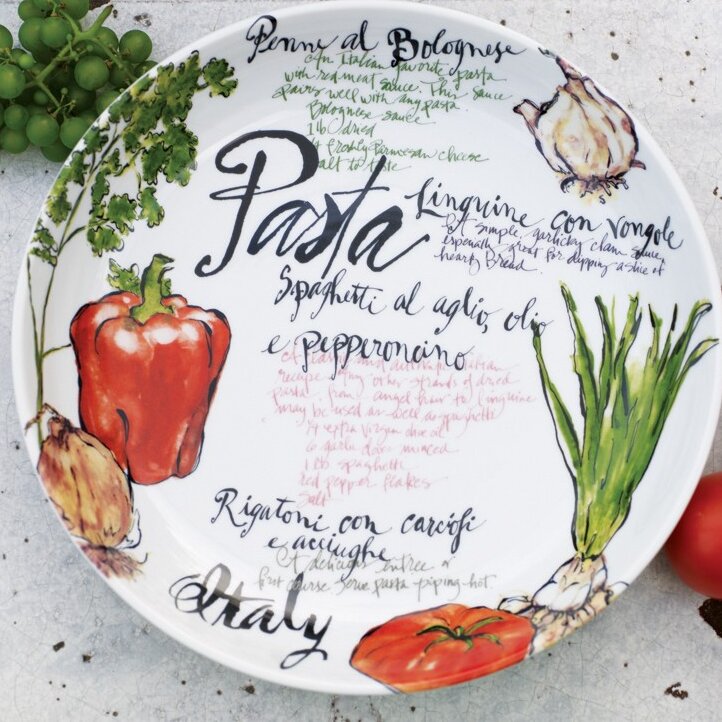 Penne al Bolognese
An Italian favorite pasta
with red meat sauce. This sauce
pairs well with any pasta.
Bolognese sauce
1 lb dried
freshly Parmesan cheese
salt to taste
Pasta
Linguine con vongole
A simple, garlicky clam sauce,
especially great for dipping a slice of
hearty Bread.
Spaghetti al aglio, olio
e pepperoncino
A and authentic Italian
recipe. Any other strands of dried
pasta from angel hair to linguine
may be used as well as spaghetti
extra virgin olive oil
6 garlic cloves minced
1 lb spaghetti
red pepper flakes
salt
Rigatoni con carciofi
e acciughe
A delicious entree or
first course serve pasta piping hot
Italy